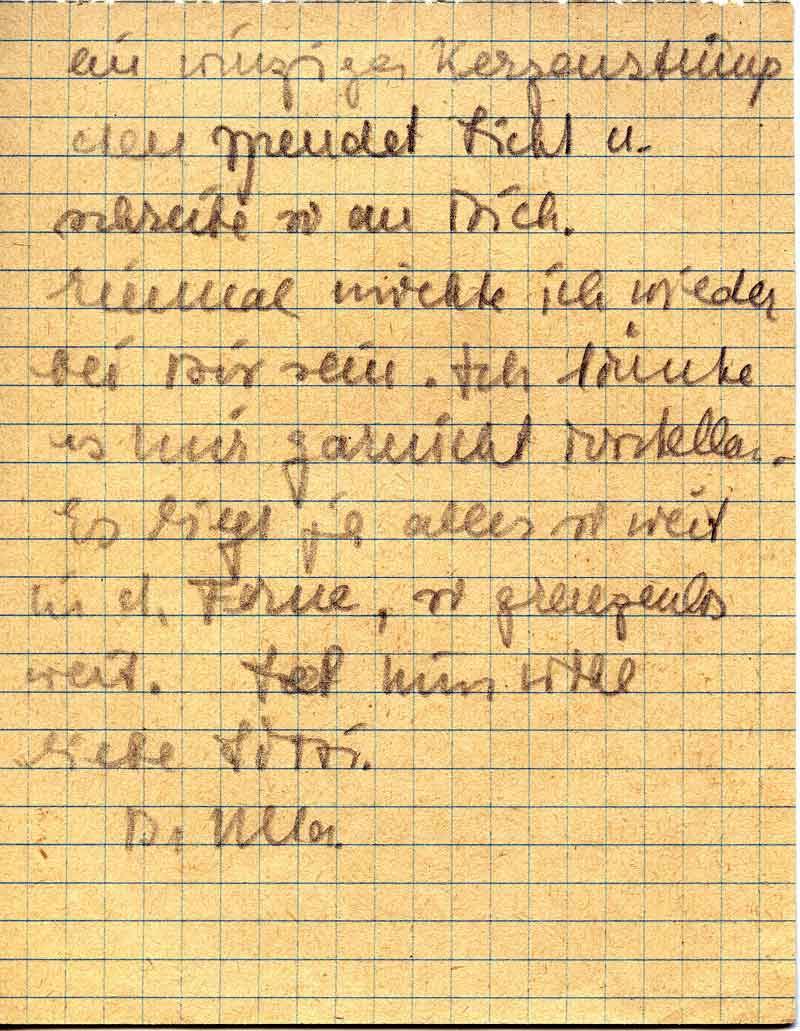 ein winziger Kerzenstümp
chen spendet Licht u.
schreibe so an Dich.
Einmal möchte ich wieder
bei Dir sein. Ich könnte
es mir garnicht vorstellen.
Es liegt ja alles so weit
in d. Ferne, so grenzenlos
weit. Leb nun wohl
liebe Lotti.